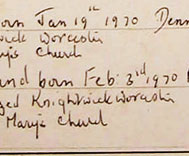 born Jan 19th 1970 Denn
wick Worcester
Mary's Church
and born Feb: 3rd 1970
Knightwick Worcester
Mary's Church